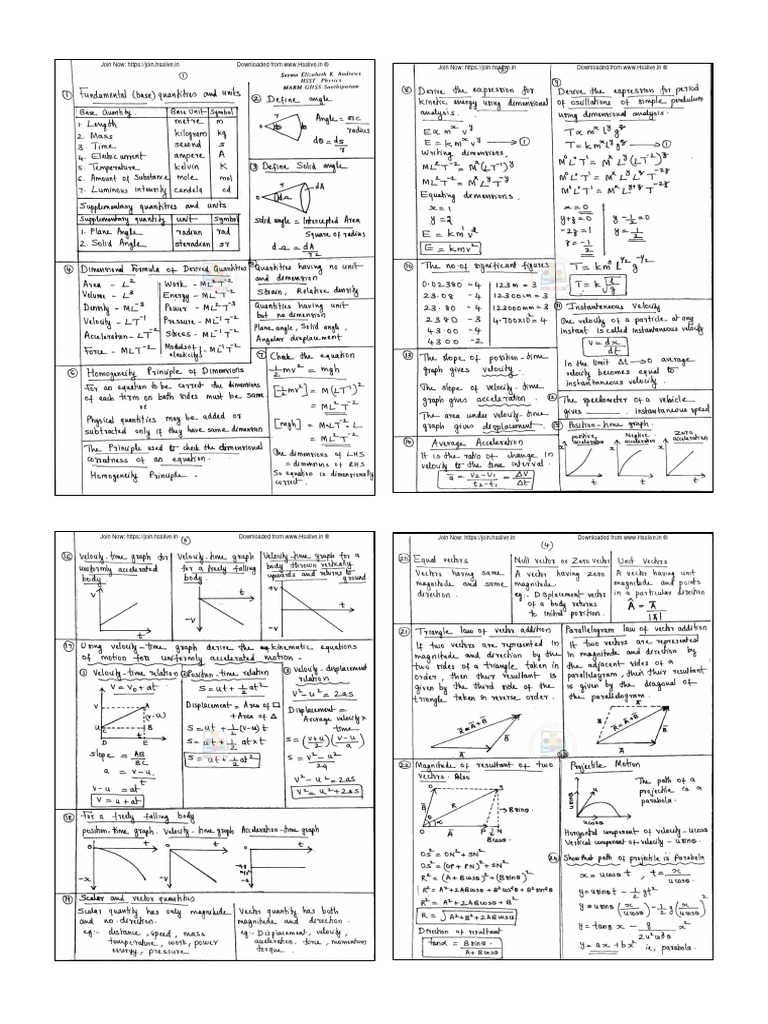 Join Now: https://join.hsslive.in Downloaded from www.Hsslive.in ®
1
Seema Elizabeth K. Andrews
HSST Physics
MARM GHSS Santhipuram
① Fundamental (base) quantities and units
Base Quantity Base Unit Symbol
1. Length metre m
2. Mass kilogram kg
3. Time second s
4. Electric current ampere A
5. Temperature kelvin K
6. Amount of Substance mole mol
7. Luminous intensity candela cd
Supplementary quantities and units
Supplementary quantity unit Symbol
1. Plane Angle radian rad
2. Solid Angle steradian sr
② Define angle
r
Angle = arc/radius
dθ = ds/r
③ Define Solid angle
r
dA
dΩ
Solid angle = Intercepted Area/Square of radius
dΩ = dA/r²
④ Dimensional Formula of Derived Quantities
Area - L² Work - ML²T⁻²
Volume - L³ Energy - ML²T⁻²
Density - ML⁻³ Power - ML²T⁻³
Velocity - LT⁻¹ Pressure - ML⁻¹T⁻²
Acceleration - LT⁻² Stress - ML⁻¹T⁻²
Force - MLT⁻² Modulus of elasticity - ML⁻¹T⁻²
Quantities having no unit
and dimension
Strain, Relative density
Quantities having unit
but no dimension
Plane angle, Solid angle,
Angular displacement
Homogeneity Principle of Dimensions
For an equation to be correct the dimensions
of each term on both sides must be same
or
Physical quantities may be added or
subtracted only if they have same dimension
The Principle used to check the dimensional
correctness of an equation.
Homogeneity Principle.
⑦ Check the equation
½mv² = mgh
[½mv²] = M(LT⁻¹)²
= ML²T⁻²
[mgh] = M·LT⁻²·L
= ML²T⁻²
The dimensions of LHS
= dimensions of RHS
So equation is dimensionally
correct.
Join Now: https://join.hsslive.in Downloaded from www.Hsslive.in ®
⑧ Derive the expression for
kinetic energy using dimensional
analysis.
E ∝ mˣ vʸ
E = k mˣ vʸ → ①
Writing dimensions
ML²T⁻² = Mˣ(LT⁻¹)ʸ
ML²T⁻² = Mˣ Lʸ T⁻ʸ
Equating dimensions.
x = 1
y = 2
E = k m¹ v²
E = kmv²
⑨ Derive the expression for period
of oscillations of simple pendulum
using dimensional analysis.
T ∝ mˣ lʸ gᶻ
T = k mˣ lʸ gᶻ → ①
M⁰L⁰T¹ = Mˣ Lʸ (LT⁻²)ᶻ
M⁰L⁰T¹ = Mˣ Lʸ Lᶻ T⁻²ᶻ
M⁰L⁰T¹ = Mˣ Lʸ⁺ᶻ T⁻²ᶻ
x = 0
y+z = 0 y - ½ = 0
-2z = 1 y = ½
z = -½
T = k m⁰ l^½ g^-½
T = k √(l/g)
⑩ The no. of significant figures
0.02380 - 4 123 m = 3
23.08 - 4 12300 cm = 3
23.80 - 4 123000 mm = 3
2380 - 3 4.700×10² = 4
43.00 - 4
4300 - 2
⑪ Instantaneous Velocity
The velocity of a particle at any
instant is called instantaneous velocity
v = dx/dt
In the limit Δt → 0 average
velocity becomes equal to
instantaneous velocity.
⑬ The slope of position-time
graph gives velocity.
The slope of velocity-time
graph gives acceleration.
The area under velocity-time
graph gives displacement.
⑫ The speedometer of a vehicle
gives ______. instantaneous speed
⑭ Average Acceleration
It is the ratio of change in
velocity to the time interval.
a = v₂-v₁/t₂-t₁ = ΔV/Δt
⑮ Position-time graph.
Positive acceleration Negative acceleration Zero acceleration
x x x
t t t
Join Now: https://join.hsslive.in Downloaded from www.Hsslive.in ®
3
⑯ Velocity-time graph for
uniformly accelerated
body
V
t
Velocity-time graph
for a freely falling
body
t
-v
Velocity-time graph for a
body thrown vertically
upwards and returns to
ground
+v
t
-v
⑰ Using velocity-time graph derive the kinematic equations
of motion for uniformly accelerated motion.
① Velocity-time relation
V = V₀ + at
V
A
(v-u)
B
C
D
E
t
slope = AB/BC
a = v-u/t
v-u = at
V = u+at
② Position-time relation
S = ut + ½at²
Displacement = Area of □
+ Area of △
S = ut + ½(v-u)t
S = ut + ½ at×t
S = ut + ½at²
③ Velocity-displacement
relation
V²-u² = 2as
Displacement =
Average velocity × time
S = (v+u/2)(v-u/a)
S = v²-u²/2a
V²-u² = 2as
V² = u²+2as
⑱ For a freely falling body
position-time graph. Velocity-time graph Acceleration-time graph
0 t 0 t 0 t
-x -v
⑲ Scalar and vector quantities
Scalar quantity has only magnitude
and no direction.
eg:- distance, speed, mass
temperature, work, power
energy, pressure
Vector quantity has both
magnitude and direction.
eg:- Displacement, velocity,
acceleration, force, momentum
torque.
Join Now: https://join.hsslive.in Downloaded from www.Hsslive.in ®
(4)
⑳ Equal vectors
Vectors having same
magnitude and same
direction.
Null vector or Zero vector
A vector having zero
magnitude.
eg:- Displacement vector
of a body returns
to initial position.
Unit vectors
A vector having unit
magnitude and points
in a particular direction
Â = A/|A|
㉑ Triangle law of vector addition
If two vectors are represented in
magnitude and direction by the
two sides of a triangle taken in
order, then their resultant is
given by the third side of the
triangle taken in reverse order.
R = A+B
B
A
Parallelogram law of vector addition
If two vectors are represented
in magnitude and direction by
the adjacent sides of a
parallelogram, then their resultant
is given by the diagonal of
the parallelogram.
R = A+B
B
A
㉒ Magnitude of resultant of two
vectors. Also
Q S
R
B
Bsinθ
O A P N
Bcosθ
OS² = ON² + SN²
OS² = (OP + PN)² + SN²
R² = (A+Bcosθ)² + (Bsinθ)²
R² = A²+2ABcosθ+B²cos²θ+B²sin²θ
R² = A²+2ABcosθ+B²
R = √A²+B²+2ABcosθ
Direction of resultant
tanα = Bsinθ/A+Bcosθ
㉓ Projectile Motion
usinθ
u
θ
ucosθ
The path of a
projectile is a
parabola.
Horizontal component of velocity - ucosθ
Vertical component of velocity - usinθ.
㉔ Show that path of projectile is Parabola
x = ucosθ t, t = x/ucosθ
y = usinθt - ½gt²
y = usinθ(x/ucosθ) - ½g(x/ucosθ)²
y = tanθ x - g/2u²cos²θ x²
y = ax + bx² ie, parabola.